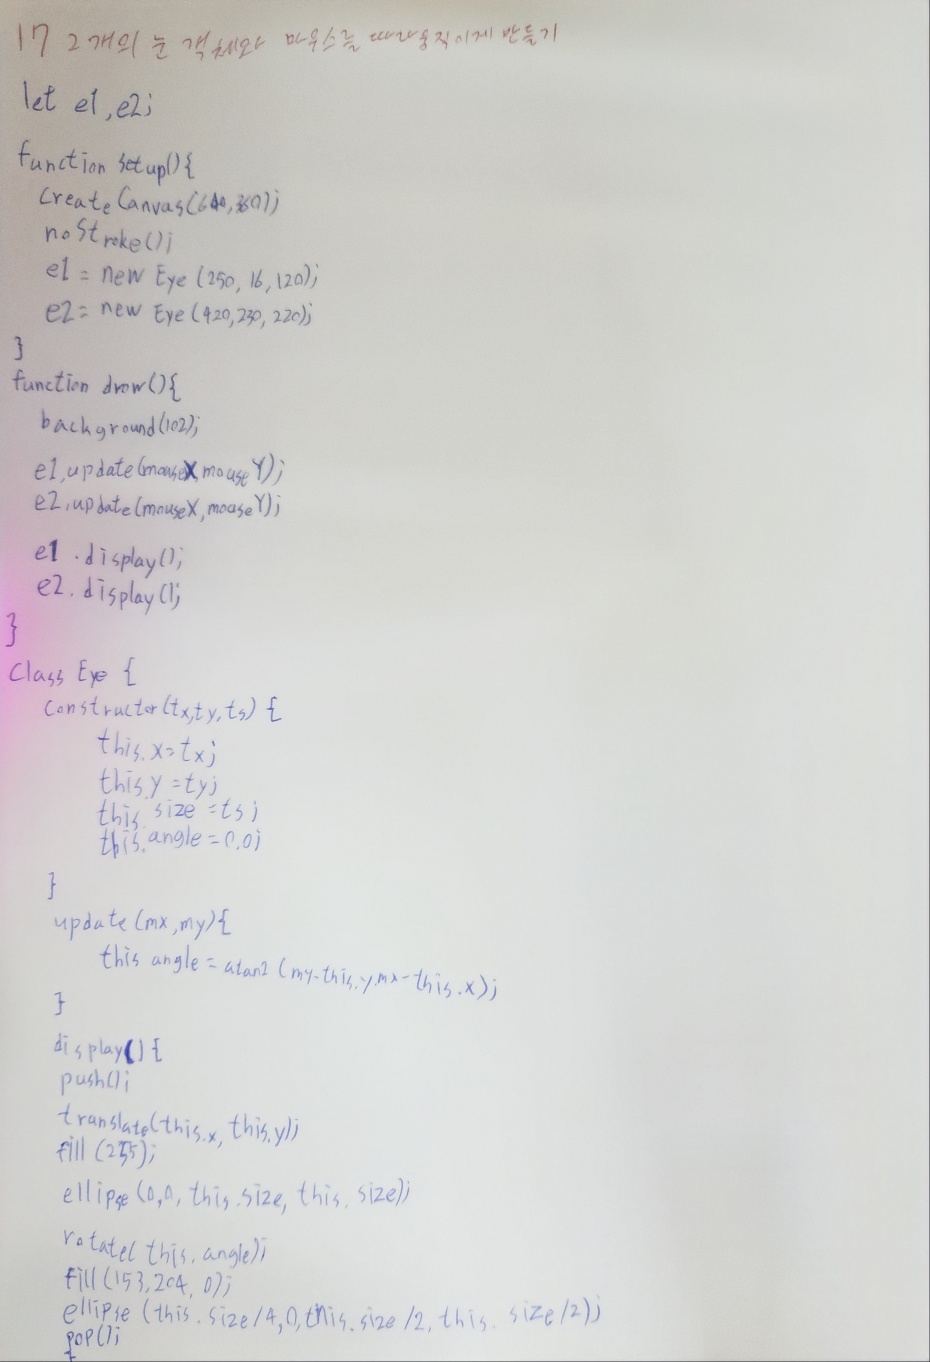 17 2개의 눈 객체와 마우스를 따라움직이게 만들기
let e1,e2;
function setup(){
createCanvas(640,360);
noStroke();
e1 = new Eye (250, 16, 120);
e2 = new Eye (420,230, 220);
}
function draw(){
background(102);
e1.update(mouseX,mouseY);
e2.update(mouseX,mouseY);
e1.display();
e2.display();
}
Class Eye {
constructor(tx,ty,ts) {
this.x=tx;
this.y=ty;
this.size=ts;
this.angle=0.0;
}
update(mx,my){
this angle = atan2 (my-this.y,mx-this.x);
}
display(){
push();
translate(this.x, this.y);
fill (255);
ellipse (0,0, this.size, this.size);
rotate( this.angle);
fill (153,204, 0);
ellipse (this.size/4,0,this.size/2, this.size/2);
pop();